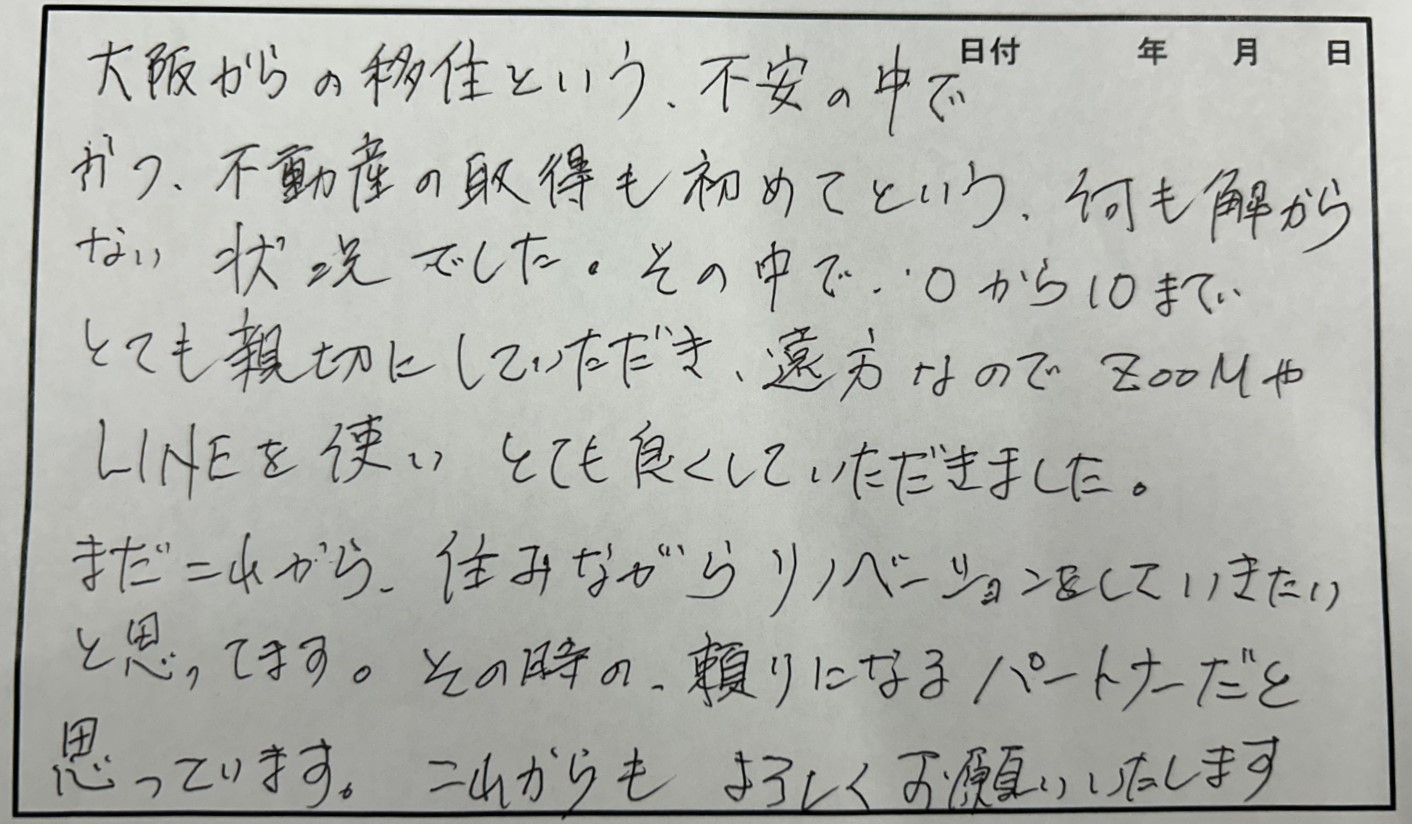 日付 年 月 日
大阪からの移住という、不安の中で
かつ、不動産の取得も初めてという、何も解から
ない 状況でした。その中で、0から10まで
とても親切にしていただき、遠方なので ZOOMや
LINEを使い とても良くしていただきました。
まだこれから、住みながらリノベーションをしていきたい
と思ってます。その時の、頼りになるパートナーだと
思っています。これからも よろしくお願いいたします